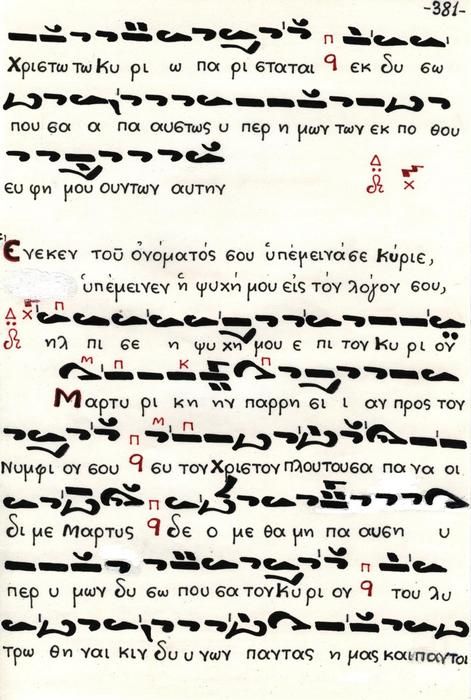 -381-
Χριστω τω Κυ ρι ω πα ρι σταται εκ δυ σω
που σα α πα αυστως υ περ η μων των εκ πο θου
ευ φη μου ουντων αυτην
Ενεκεν τοῦ ὀνόματός σου ὑπέμεινά σε Κύριε,
ὑπέμεινεν ἡ ψυχή μου εἰς τόν λόγον σου,
ηλ πι σε η ψυ χη μου ε πι τον Κυ ρι ον
Μαρτυ ρι κη ην παρρη σι ι αν προς τον
Νυμφι ον σου ευ τον Χριστον πλουτουσα πα να οι
δι με Μαρτυς δε ο με θα μη πα αυση υ
περ υ μων δυ σω που σα τον Κυ ρι ον του λυ
τρω θη ναι κιν δυ υ νων παντας η μας και παντοι